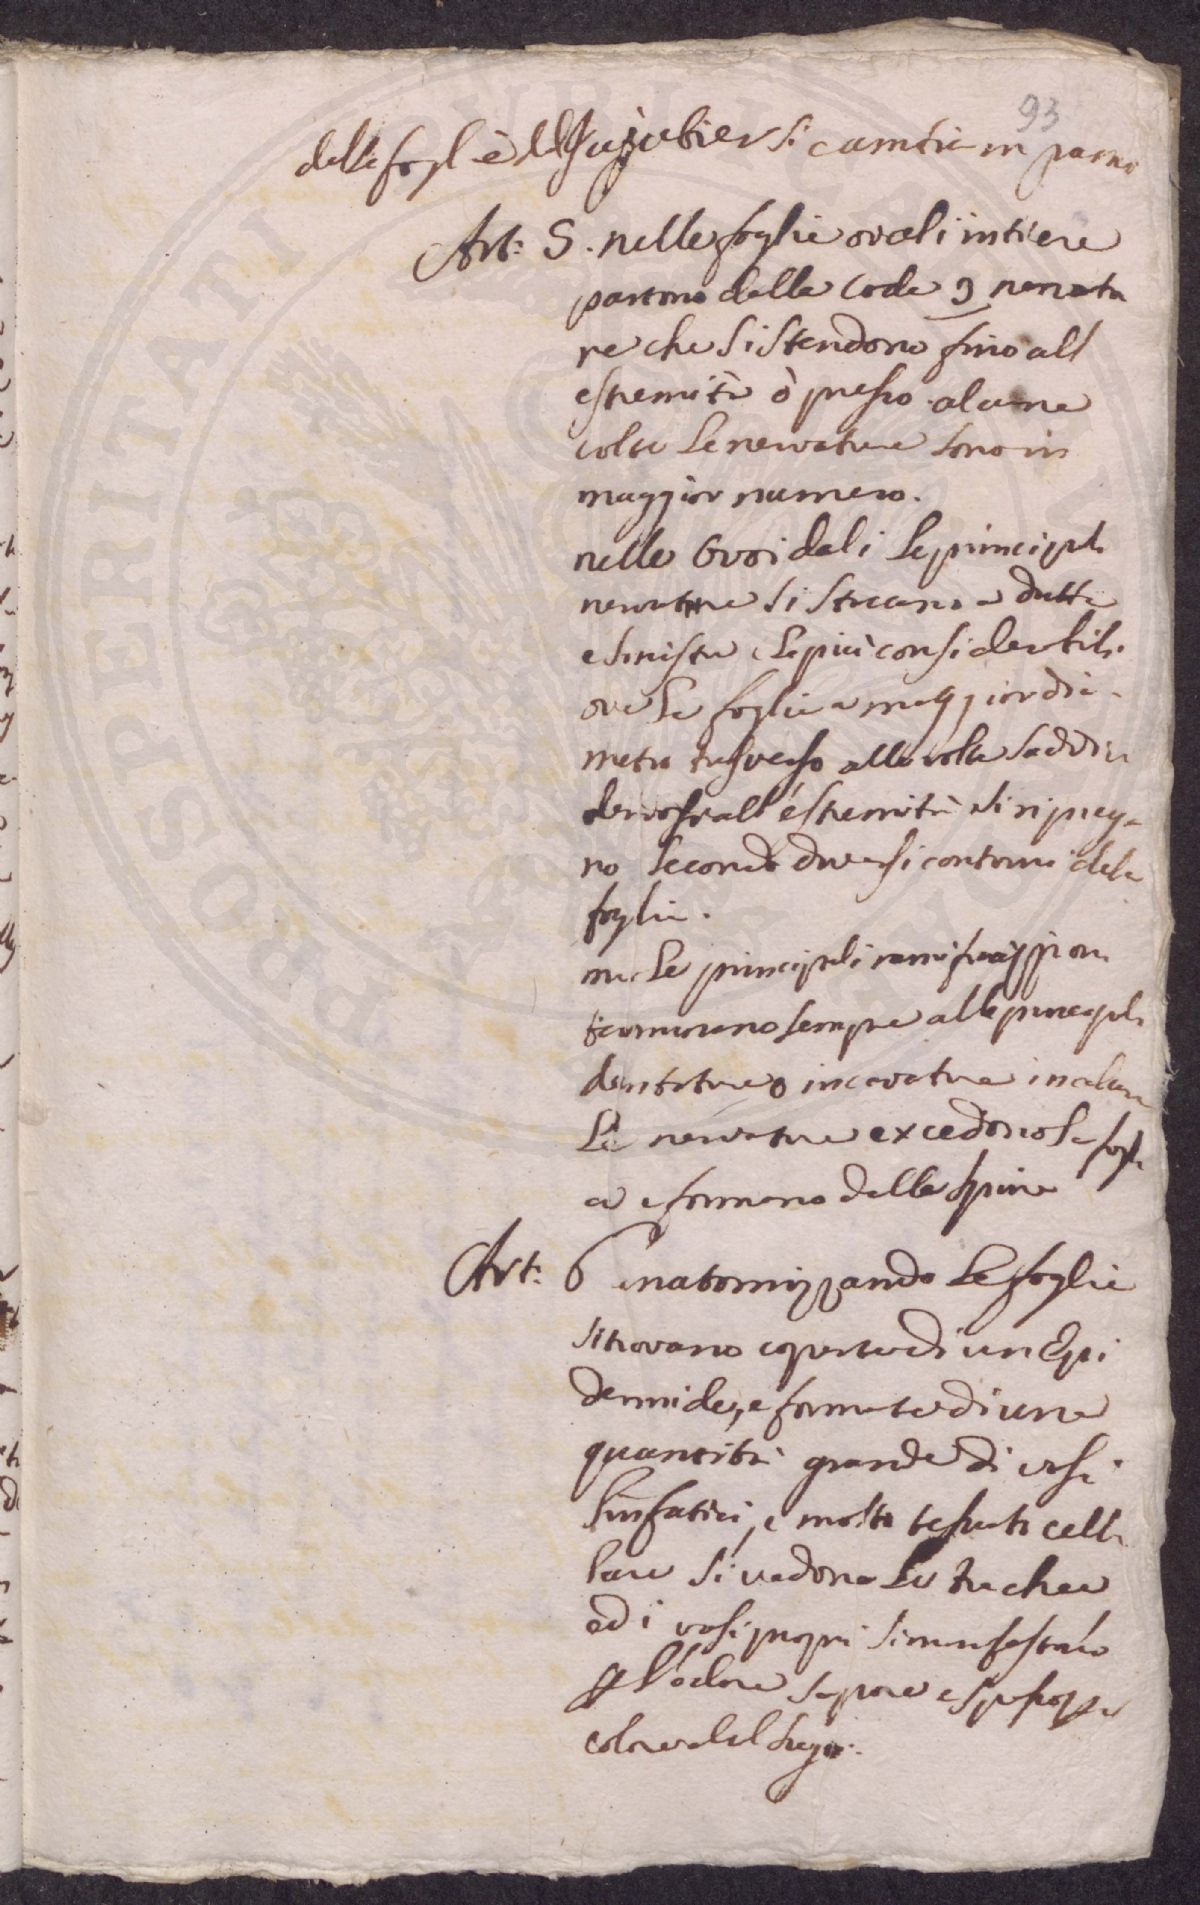 93
delle fogl è del Jujubier si cambia in
Art: 5. nelle foglie ovali intiere
partono dalla coda 9 nervatu
re che si stendono fino all
estremità ò presso alcune
volte le nervature sono in
maggior numero.
nelle Ovoidali le principali
nervature si staccano a dritta
e sinistra e le più considerabili
ove la foglia a maggior dia-
metro trasverso alle volte
all'estremità si ripiega
no secondo diversi contorni dela
foglia.
ma le principali ramificazzioni
sempre alle principali
dentature o incavature in alcune
Le nervature excedono la fogli
a e formano delle spine
Art: 6 anatomizzando le foglie
si trovano coperte di un Epi
dermide, e formate di una
quantità grande di vasi
linfatici, e molto tessuto cellu
lare si vedono le trachee
ed i vasi propri si manifestano
per l'odore sapore e spesso per
colore del sugo.
POSPERITATI PUBLICAE